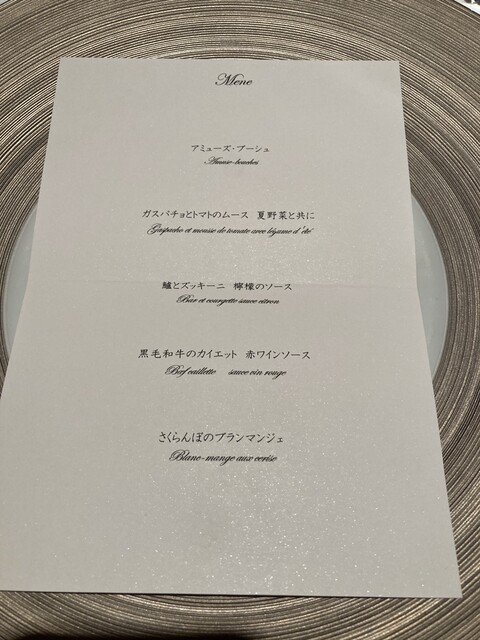 Mene
アミューズ・ブーシュ
Amuse-bouches
ガスパチョとトマトのムース 夏野菜と共に
Gaspacho et mousse de tomate avec légume d'été
鱸とズッキーニ 檸檬のソース
Bar et courgette sauce citron
黒毛和牛のカイエット 赤ワインソース
Bœf caillette sauce vin rouge
さくらんぼのブランマンジェ
Blanc-mange aux cerise